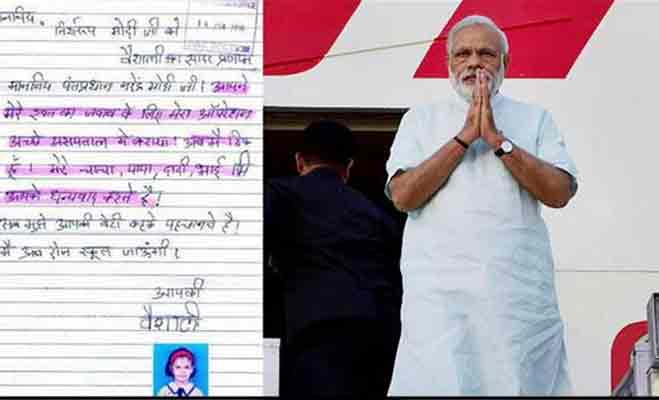 मोदी जी को
वैशाली का सादर प्रणाम
माननिय पंतप्रधान नरेंद्र मोदी जी। आपने
मेरे खत का जवाब के लिए मेरा ऑपरेशन
अच्छे असपताल मे कराया। अब मै ठिक
हूँ। मेरे चाचा, पापा, दादी, भाई भी
आपको धन्यवाद करते है।
सब मुझे आपकी बेटी कहके पहचानते है।
मै अब रोज स्कूल जाऊंगी।
आपकी
वैशाली